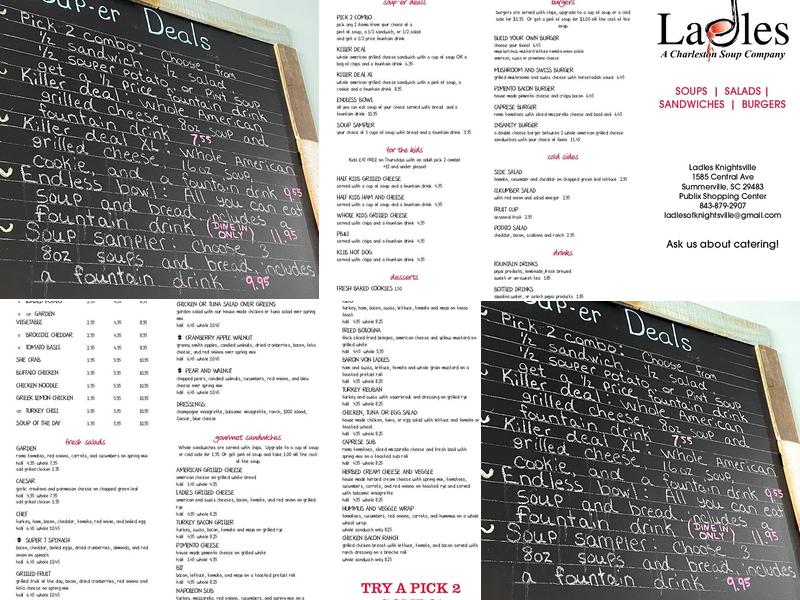 up-er Deals
Pick 2 Combo: choose from
½ sandwich, ½ salad
get a ½ price
Killer deal:
grilled cheese, 8oz soup and
7.55
Killer deal XL: whole American
grilled cheese,
Cookie, fountain drink 9.55
Endless bowl: All you can eat
soup and bread, includes a
fountain drink (DINE IN ONLY) 11.95
Soup sampler: choose 3
8oz soups and bread, includes
a fountain drink 9.95
soup-er deals
PICK 2 COMBO
pick any 2 items from your choice of a
pint of soup, a 1/2 sandwich, or 1/2 salad
and get a 1/2 price fountain drink
KILLER DEAL
whole american grilled cheese sandwich with a cup of soup OR a
bag of chips and a fountain drink 6.35
KILLER DEAL XL
whole american grilled cheese sandwich with a pint of soup, a
cookie and a fountain drink 8.35
ENDLESS BOWL
all you can eat soup of your choice served with bread and a
fountain drink 10.35
SOUP SAMPLER
your choice of 3 cups of soup with bread and a fountain drink
for the kids
Kids EAT FREE on Thursdays with an adult pick 2 combo!
*12 and under please!
HALF KIDS GRILLED CHEESE
served with a cup of soup and a fountain drink 4.35
HALF KIDS HAM AND CHEESE
served with a cup of soup and a fountain drink 4.35
WHOLE KIDS GRILLED CHEESE
served with chips and a fountain drink 4.35
PB&J
served with chips and a fountain drink 4.35
KIDS HOT DOG
served with chips and a fountain drink 4.35
desserts
FRESH BAKED COOKIES 1.50
burgers
burgers are served with chips, upgrade to a cup of soup or a cold
side for $1.35. Or get a pint of soup for $1.00 all the cost of the
soup.
BUILD YOUR OWN BURGER
choose your fixins! 6.45
american, swiss or provolone cheese
MUSHROOM AND SWISS BURGER
grilled mushrooms and swiss cheese with horseradish sauce 6.45
PIMENTO BACON BURGER
house made pimento cheese and crispy bacon 6.45
CAPRESE BURGER
roma tomatoes with sliced mozzarella cheese and basil aioli 6.45
INSANITY BURGER
a double cheese burger between 2 whole american grilled cheese
sandwiches with your choice of fixins 11.45
cold sides
SIDE SALAD
tomato, cucumber and cheddar on chopped green leaf lettuce 2.35
CUCUMBER SALAD
with red onion and salad vinegar 2.35
FRUIT CUP
seasonal fruit 2.35
POTATO SALAD
cheddar, bacon, scallions and ranch 2.35
drinks
FOUNTAIN DRINKS
pepsi products, lemonade, fresh brewed
sweet or un-sweet tea 1.85
BOTTLED DRINKS
aquafina water, or select pepsi products 1.85
Ladles
A Charleston Soup Company
SOUPS | SALADS |
SANDWICHES | BURGERS
Ladles Knightsville
1585 Central Ave
Summerville, SC 29483
Publix Shopping Center
843-879-2907
ladlesofknightsville@gmail.com
Ask us about catering!
LOADED POTATO 2.35 4.35 8.35
GARDEN
VEGETABLE 2.35 4.35 8.35
BROCCOLI CHEDDAR 2.35 4.35 8.35
TOMATO BASIL 2.35 4.35 8.35
SHE CRAB 3.35 5.35 10.35
BUFFALO CHICKEN 3.35 5.35 10.35
CHICKEN NOODLE 3.35 5.35 10.35
GREEK LEMON CHICKEN 3.35 5.35 10.35
or TURKEY CHILI 3.35 5.35 10.35
SOUP OF THE DAY 2.35 4.35 8.35
fresh salads
GARDEN
roma tomatoes, red onions, carrots, and cucumbers on spring mix
half 4.35 whole 7.35
add grilled chicken 1.35
CAESAR
garlic croutons and parmesan cheese on chopped green leaf
half 4.35 whole 7.35
add grilled chicken 1.35
CHEF
turkey, ham, bacon, cheddar, tomato, red onion, and boiled egg
half 6.45 whole 10.45
SUPER 7 SPINACH
bacon, cheddar, boiled eggs, dried cranberries, almonds, and red
onion on spinach
half 6.45 whole 10.45
GRILLED FRUIT
grilled fruit of the day, bacon, dried cranberries, red onions and
feta cheese on spring mix
half 6.45 whole 10.45
CHICKEN OR TUNA SALAD OVER GREENS
garden salad with our house made chicken or tuna salad over spring
mix
half 6.45 whole 10.45
CRANBERRY APPLE WALNUT
granny smith apples, candied walnuts, dried cranberries, bacon, feta
cheese, and red onions over spring mix
half 6.45 whole 10.45
PEAR AND WALNUT
chopped pears, candied walnuts, cucumbers, red onions, and bleu
cheese over spring mix
half 6.45 whole 10.45
DRESSINGS:
champagne vinaigrette, balsamic vinaigrette, ranch, 1000 island,
Caesar, blue cheese
gourmet sandwiches
Whole sandwiches are served with chips. Upgrade to a cup of soup
or cold side for 1.35. Or get a pint of soup and take 1.00 all the cost
of the soup.
AMERICAN GRILLED CHEESE
american cheese on grilled white bread
half 1.45 whole 4.35
LADLES GRILLED CHEESE
american and swiss cheeses, bacon, tomato, and red onion on grilled
rye
half 4.35 whole 8.25
TURKEY BACON GRILLER
turkey, swiss, bacon, tomato and mayo on grilled rye
half 4.35 whole 8.25
PIMENTO CHEESE
house made pimento cheese on grilled white
half 1.45 whole 4.35
BLT
bacon, lettuce, tomato, and mayo on a toasted pretzel roll
half 4.35 whole 8.25
NAPOLEON SUB
turkey, mozzarella, red onion, cucumbers, and spring mix on a
turkey, ham, bacon, swiss, lettuce, tomato and mayo on texas
toast
half 4.35 whole 8.25
FRIED BOLOGNA
thick sliced fried bologna, american cheese and yellow mustard on
grilled white
half 4.45 whole 5.35
BARON VON LADLES
ham and swiss, lettuce, tomato and whole grain mustard on a
toasted pretzel roll
half 4.35 whole 8.25
TURKEY REUBAN
turkey and swiss with sauerkraut and dressing on grilled rye
half 4.35 whole 8.25
CHICKEN, TUNA OR EGG SALAD
house made chicken, tuna, or egg salad with lettuce and tomato on
toasted wheat
half 4.35 whole 8.25
CAPRESE SUB
roma tomatoes, sliced mozzarella cheese and fresh basil with
spring mix on a toasted sub roll
half 4.35 whole 8.25
HERBED CREAM CHEESE AND VEGGIE
house made herbed cream cheese with spring mix, tomatoes,
cucumbers, carrots, and red onions on toasted rye and served
with balsamic vinaigrette
half 4.35 whole 8.25
HUMMUS AND VEGGIE WRAP
tomatoes, cucumbers, red onions, carrots, and hummus on a whole
wheat wrap
whole sandwich only 8.25
CHICKEN BACON RANCH
grilled chicken breast with lettuce, tomato, and bacon served with
ranch dressing on a brioche roll
whole sandwich only 8.25
TRY A PICK 2
up-er Deals
Pick 2 Combo: choose from
½ sandwich, ½ salad
get a ½ price
Killer deal:
grilled cheese, 8oz soup and
7.55
Killer deal XL: whole American
grilled cheese,
Cookie, fountain drink 9.55
Endless bowl: All you can eat
soup and bread, includes a
fountain drink (DINE IN ONLY) 11.95
Soup sampler: choose 3
8oz soups and bread, includes
a fountain drink 9.95